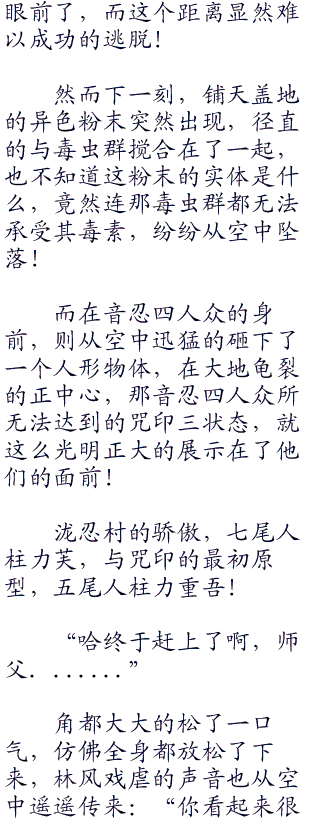 眼前了，而这个距离显然难
以成功的逃脱！
然而下一刻，铺天盖地
的异色粉末突然出现，径直
的与毒虫群搅合在了一起，
也不知道这粉末的实体是什
么，竟然连那毒虫群都无法
承受其毒素，纷纷从空中坠
落！
而在音忍四人众的身
前，则从空中迅猛的砸下了
一个人形物体，在大地龟裂
的正中心，那音忍四人众所
无法达到的咒印三状态，就
这么光明正大的展示在了他
们的面前！
泷忍村的骄傲，七尾人
柱力芙，与咒印的最初原
型，五尾人柱力重吾！
“哈终于赶上了啊，师
父．．．．．．．”
角都大大的松了一口
气，仿佛全身都放松了下
来，林风戏虐的声音也从空
中遥遥传来：“你看起来很